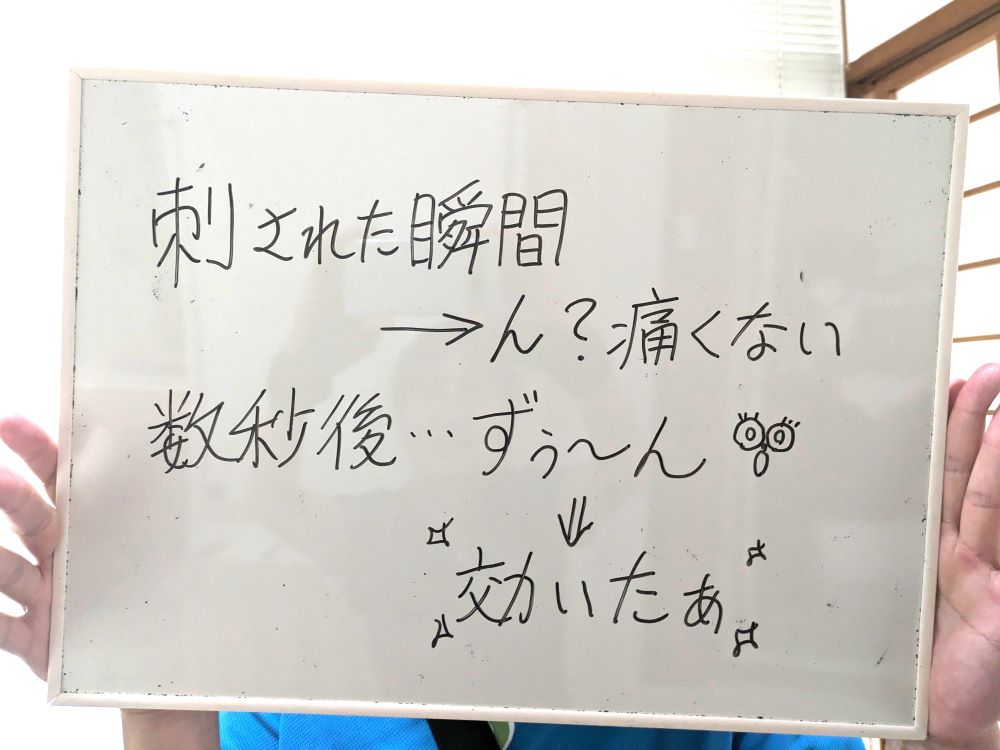 刺された瞬間
→ん？痛くない
数秒後…ずぅ〜ん
⇓
効いたぁ